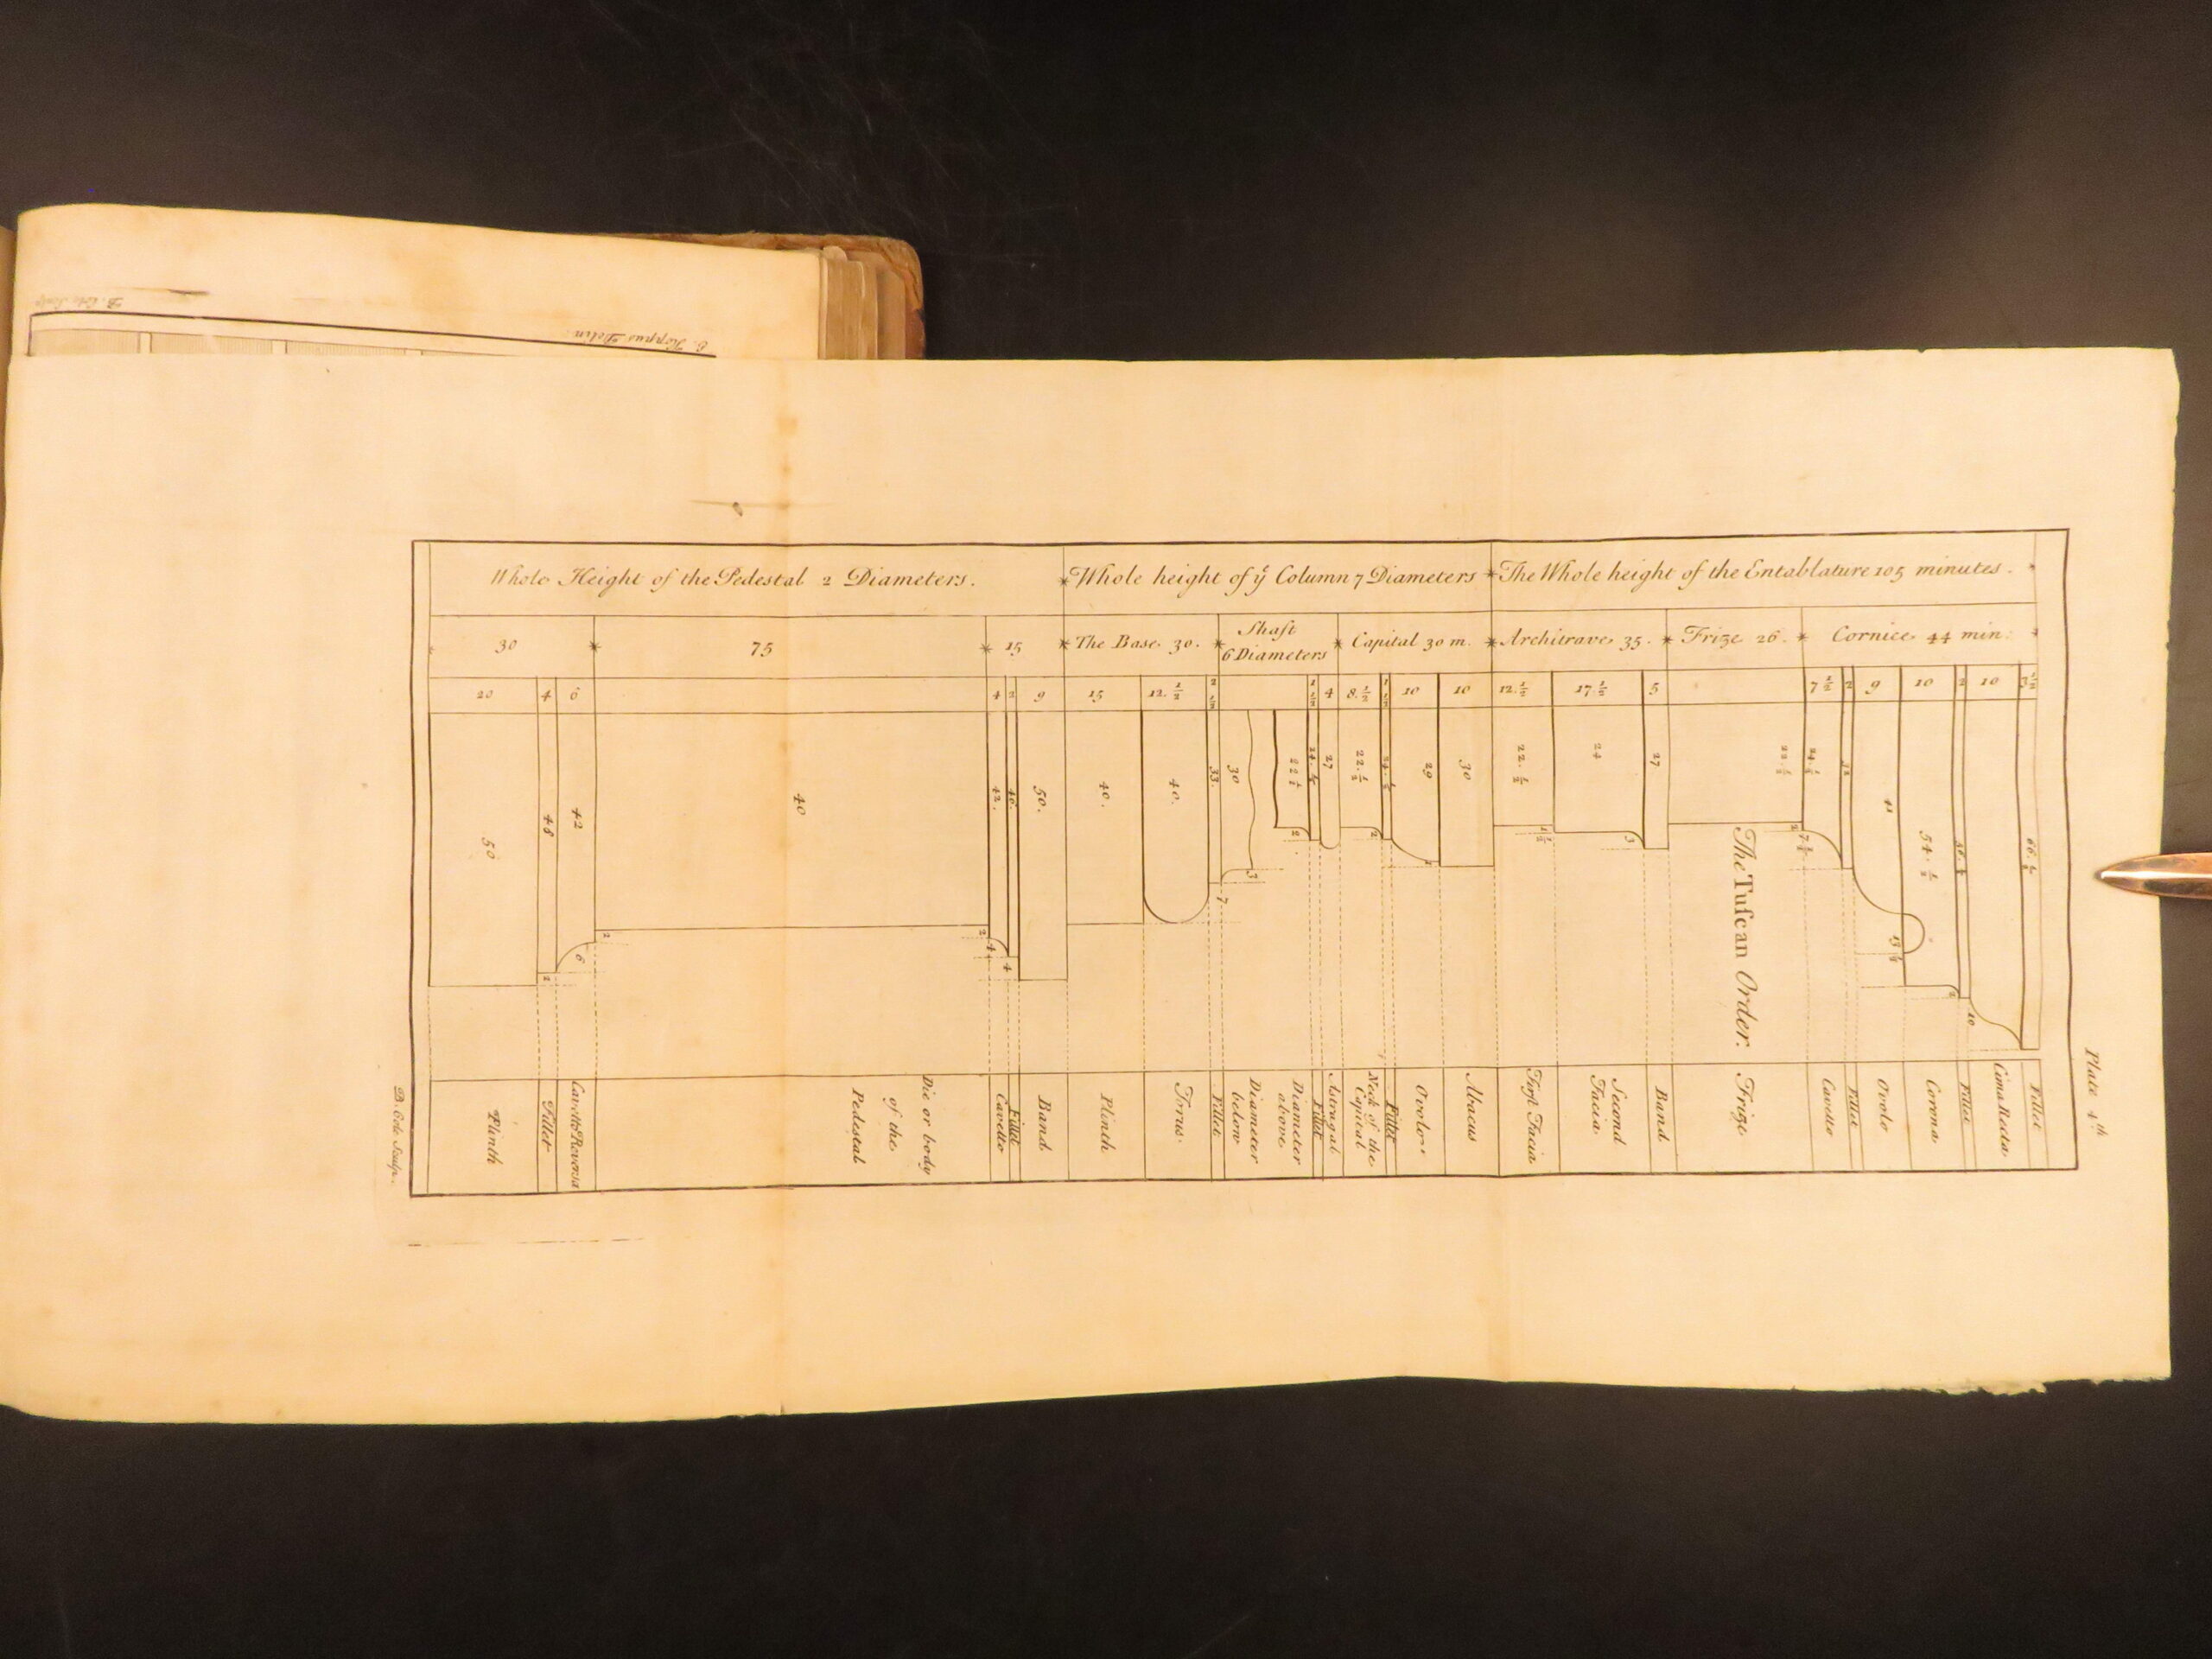 B. Cole Sculp
E. Hoppus Delin.
Plate 4th
Whole Height of the Pedestal 2 Diameters.
*Whole height of ye Column 7 Diameters
*The Whole height of the Entablature 105 minutes.
30 * 75 * 15 * The Base. 30. * Shaft 6 Diameters * Capital 30 m. * Architrave 35. * Frize 26. * Cornice 44 min:
20 4 6 4 2 9 15 12.½ 2½ 1½ 4 8.½ 1½ 10 10 12.½ 17.½ 5 7½ 2 9 10 2 10 3½
50 48 42 40 42. 46. 50. 40. 40. 33. 30 22½ 24.½ 27 22.½ 24.½ 29 30 22.½ 24 27 22.½ 24.½ 32 41 54.½ 56.½ 66.½
2 6 2 2 4 4 7 3 2 2 1 1½ 3 2 7½ 13½ 2 10
The Tuscan Order.
Plinth
Fillet
Cavetto Reversa
Die or body
of the
Pedestal
Cavetto
Fillet
Band
Plinth
Torus.
Fillet
Diameter
below
Diameter
above
Fillet
Astragal
Neck of the
Capital
Fillet
Ovolo
Abacus
First Facia
Second
Facia
Band
Frize
Cavetto
Fillet
Ovolo
Corona
Fillet
Cima Recta
Fillet
B. Cole Sculp.